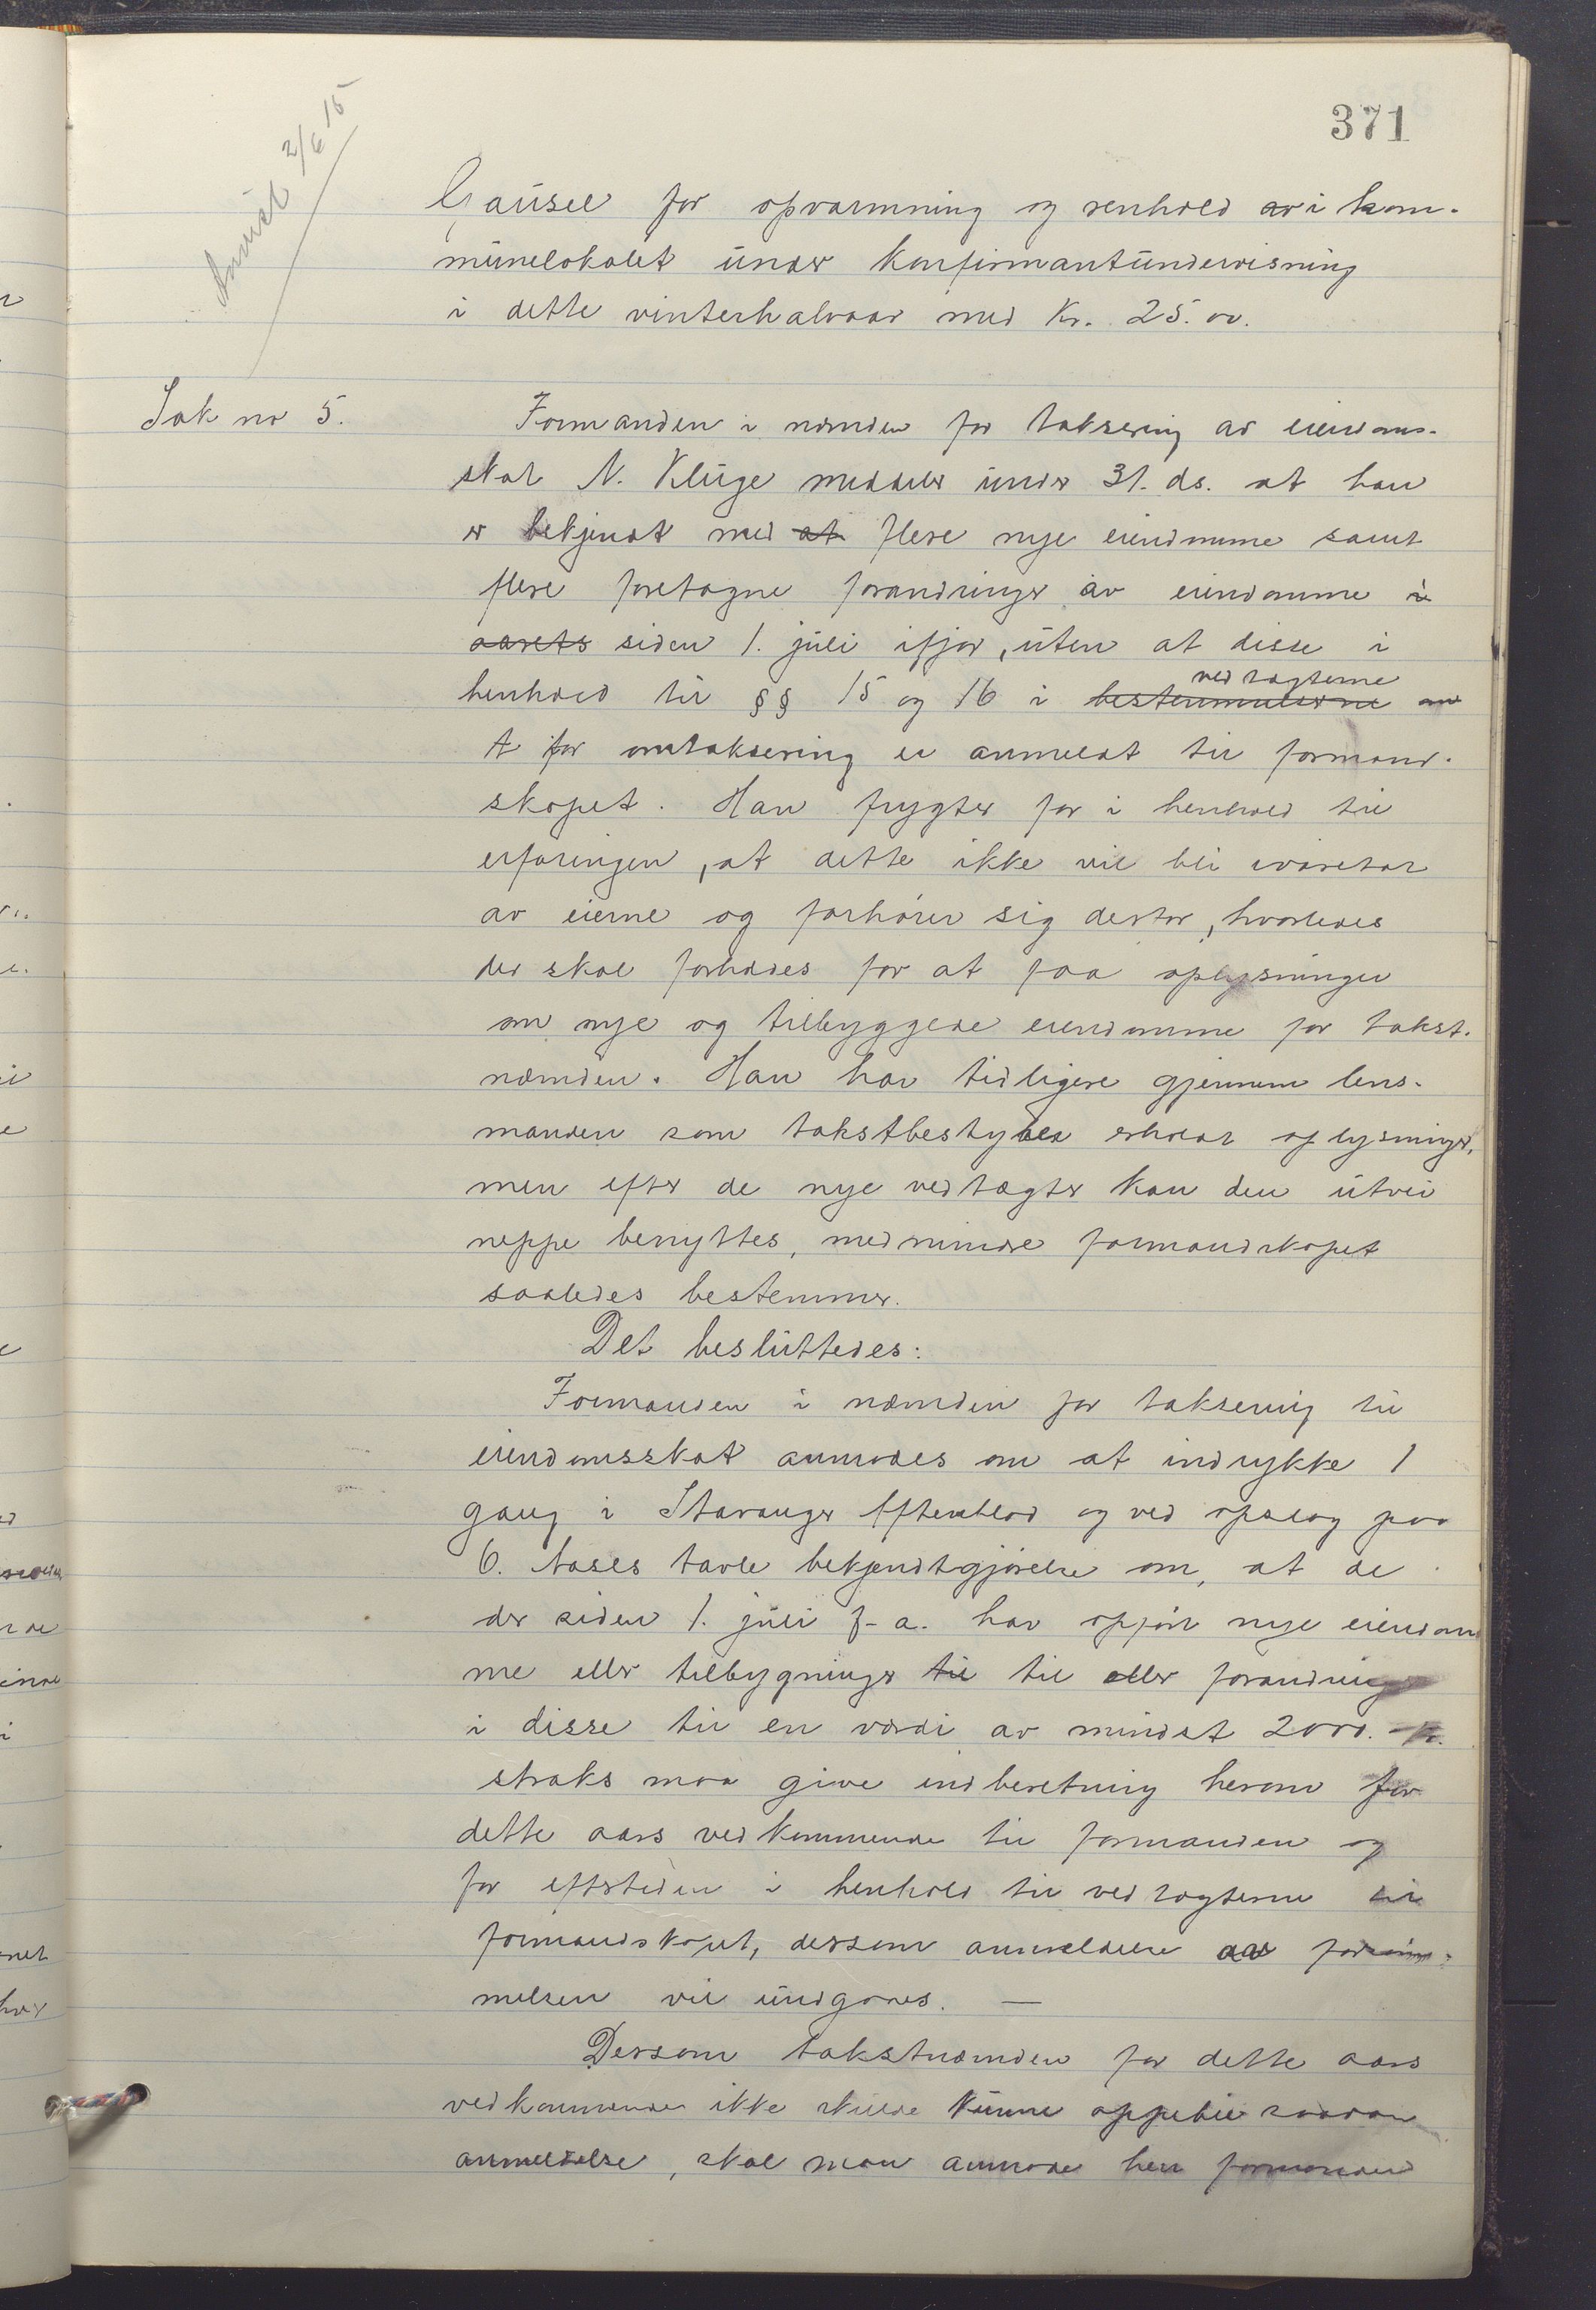 371
Anvist 2/6 15
Gausel for opvarmning og renhold av i kom-
munelokalet under konfirmantundervisning
i dette vinterhalvaar med Kr. 25.00.
Sak no 5.
Formanden i nemden for taksering av eiendoms-
skat N. Kluge meddeler under 31. ds. at han
er bekjendt med at flere nye eiendomme samt
flere foretagne forandringer av eiendomme i
aarets siden 1. juli ifjor, uten at disse i
vedtagterne
henhold til §§ 15 og 16 i bestemmelserne om
t for omtaksering er anmeldt til formand-
skapet. Han frygter for i henhold til
erfaringen, at dette ikke vil bli ivaretat
av eierne og forhører sig derfor, hvorledes
der skal forholdes for at faa oplysninger
om nye og tilbyggede eiendomme for takst-
nemden. Han har tidligere gjennem lens-
manden som takstbestyrer erholdt oplysninger,
men efter de nye vedtægter kan den utvei
neppe benyttes, medmindre formandskapet
saaledes bestemmer.
Det besluttedes:
Formanden i nemden for taksering til
eiendomsskat anmodes om at indrykke 1
gang i Stavanger Aftenblad og ved opslag paa
O. Aases tavle bekjendtgjørelse om, at de
der siden 1. juli f. a. har opført nye eiendom
me eller tilbygninger til til eller forandringer
i disse til en værdi av mindst 2000. kr.
straks maa give indberetning herom for
dette aars vedkommende til formanden og
for eftertiden i henhold til vedtagterne til
formandskapet, dersom anmeldelse av
melsen vil undgaaes. —
Dersom takstnemden for dette aars
vedkommende ikke skulde kunne oppebie saadan
anmeldelse, skal man anmode herr formanden